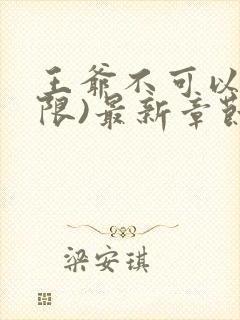 王爷不可以
限)最新章节
梁安琪